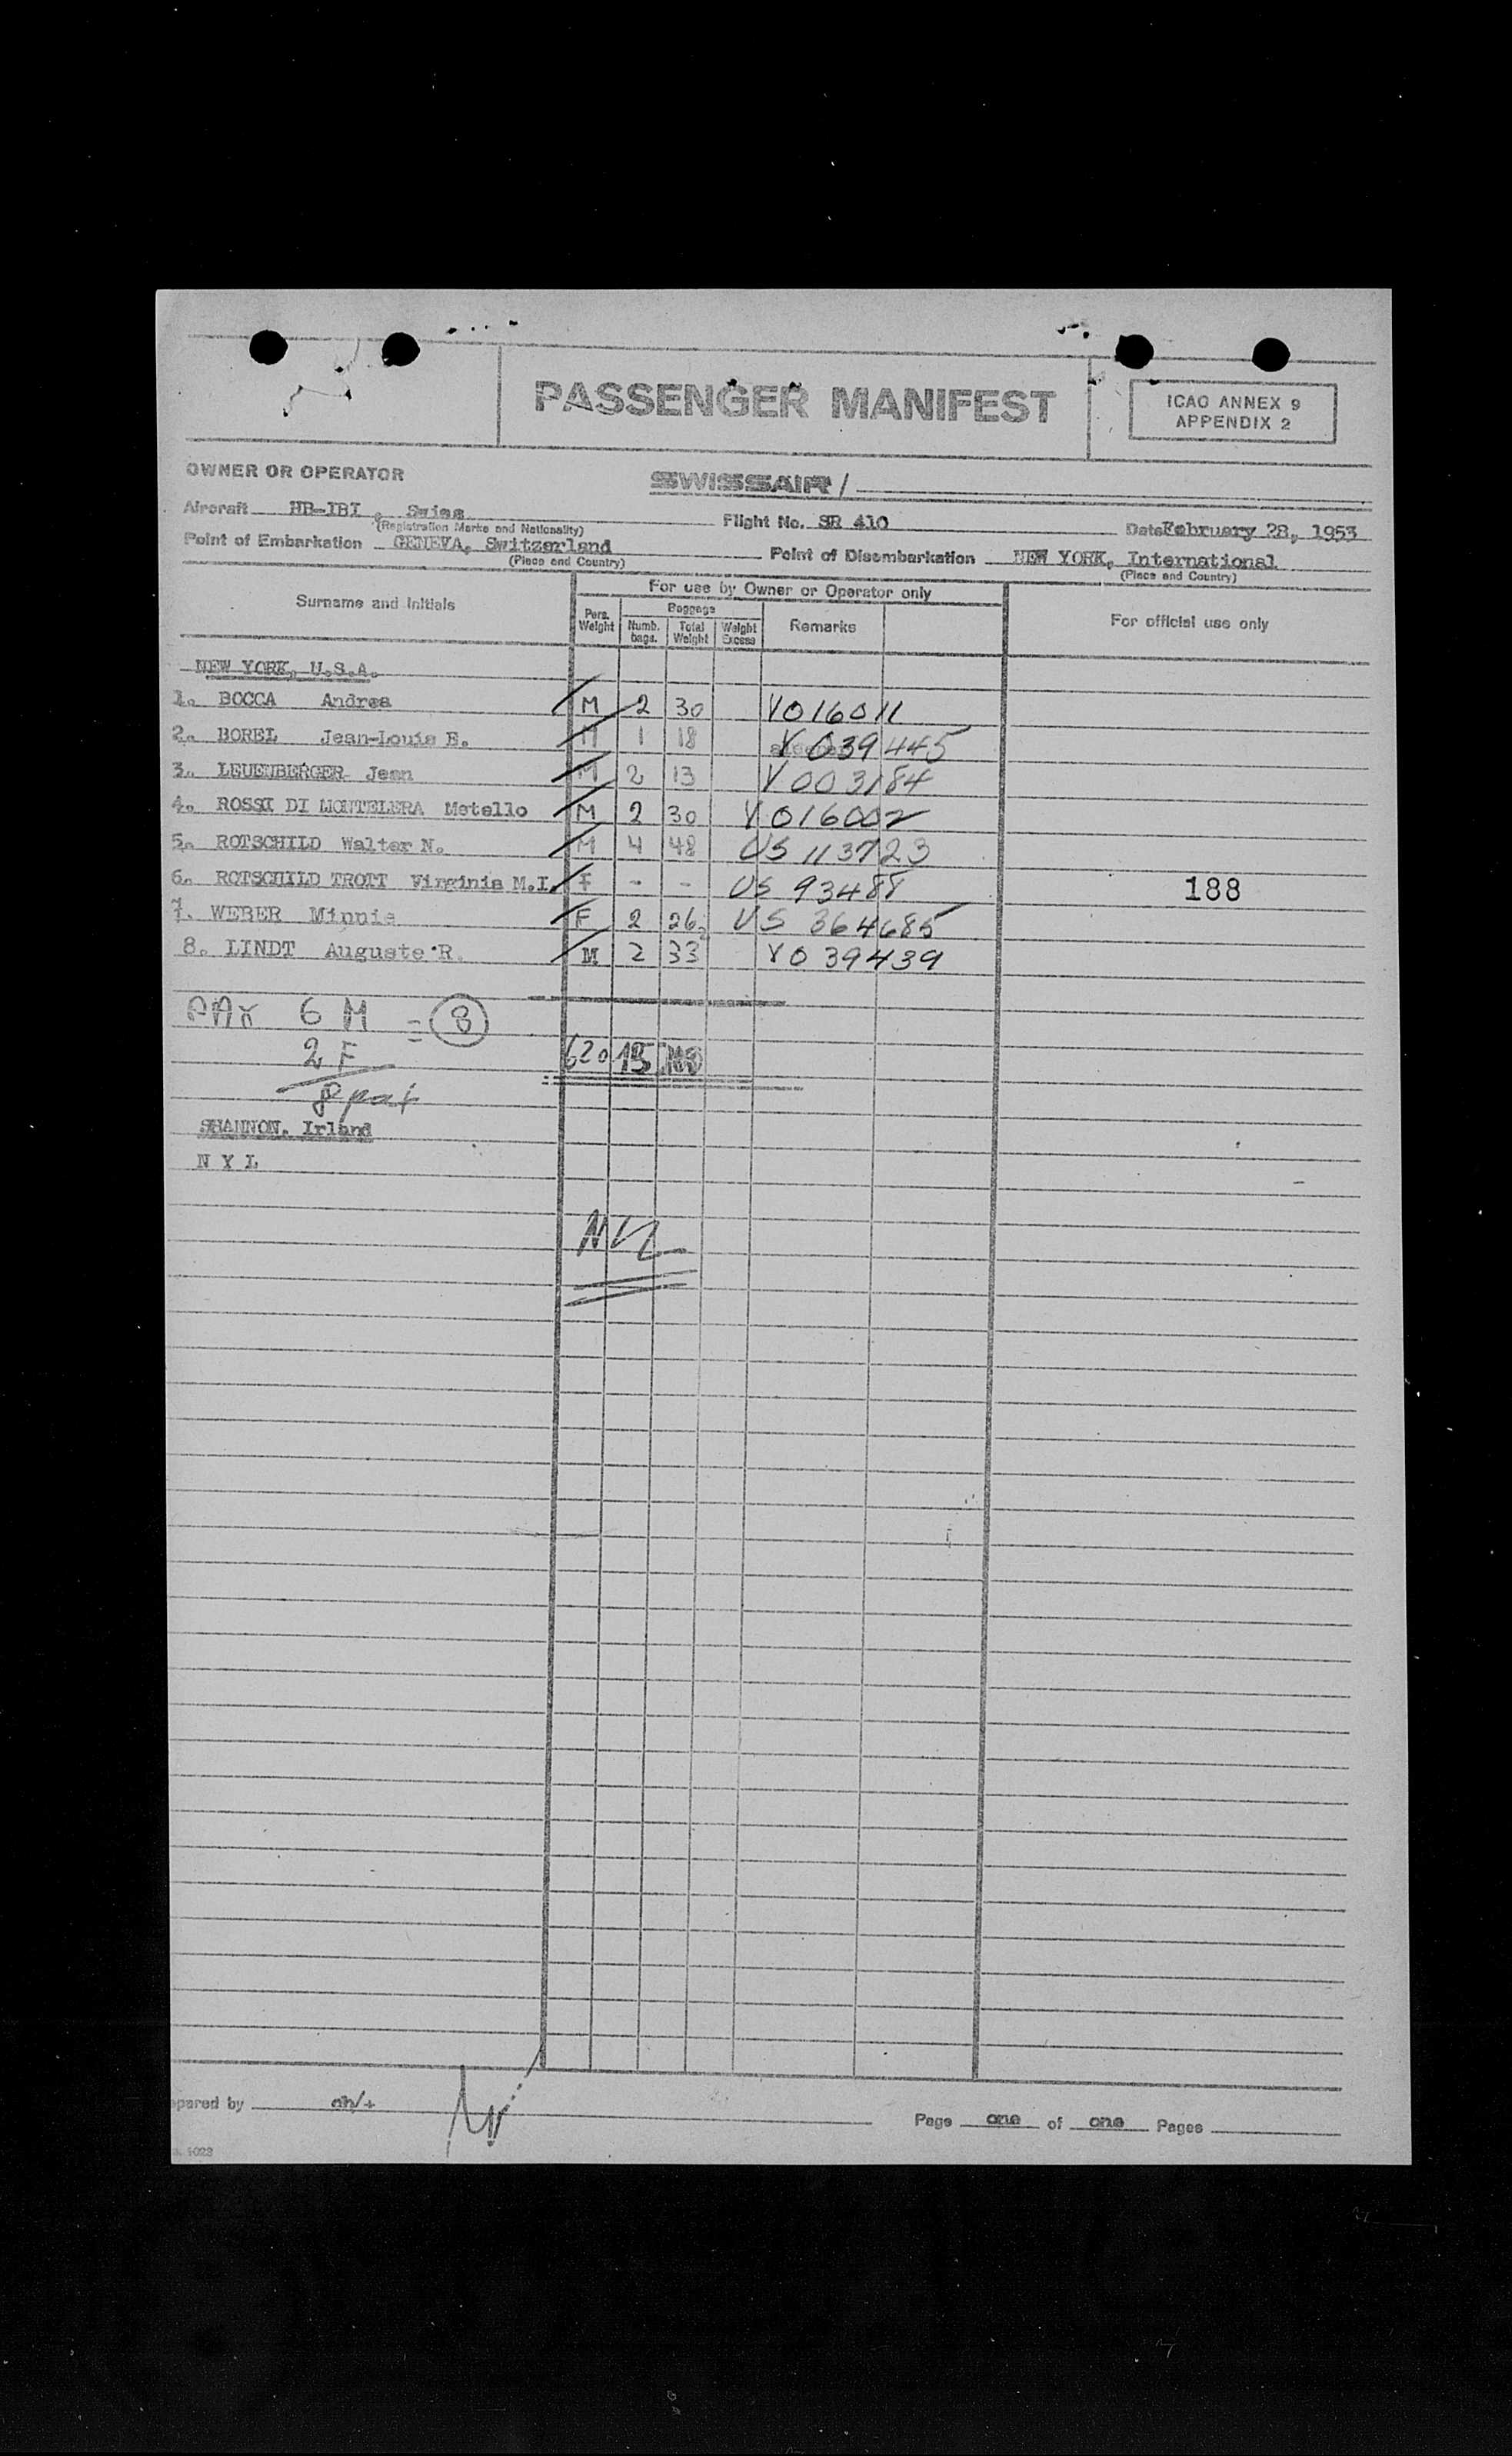 PASSENGER MANIFEST
ICAO ANNEX 9
APPENDIX 2
OWNER OR OPERATOR SWISSAIR /
Aircraft HB-IBI , Swiss Flight No. SR 410 Date February 28, 1953
(Registration Marks and Nationality)
Point of Embarkation GENEVA, Switzerland Point of Disembarkation NEW YORK, International
(Place and Country) (Place and Country)
For use by Owner or Operator only
Surname and Initials Pers. Weight Baggage Numb. bags. Total Weight Weight Excess Remarks For official use only
NEW YORK, U.S.A.
1. BOCCA Andrea M 2 30 V016011
2. BOREL Jean-Louis E. M 1 18 V 039445
3. LEUENBERGER Jean M 2 13 V 003184
4. ROSSI DI MONTELERA Metello M 2 30 V 016002
5. ROTSCHILD Walter N. M 4 48 US 113723
6. ROTSCHILD TROTT Virginia M.I. F - - US 93488 188
7. WEBER Minnie F 2 26 US 364685
8. LINDT Auguste R. M 2 33 V0 39439
PAX 6 M = 8
2 F
620 15
8 pax
SHANNON, Irland
N Y L
epared by oh/+
Page one of one Pages
1023